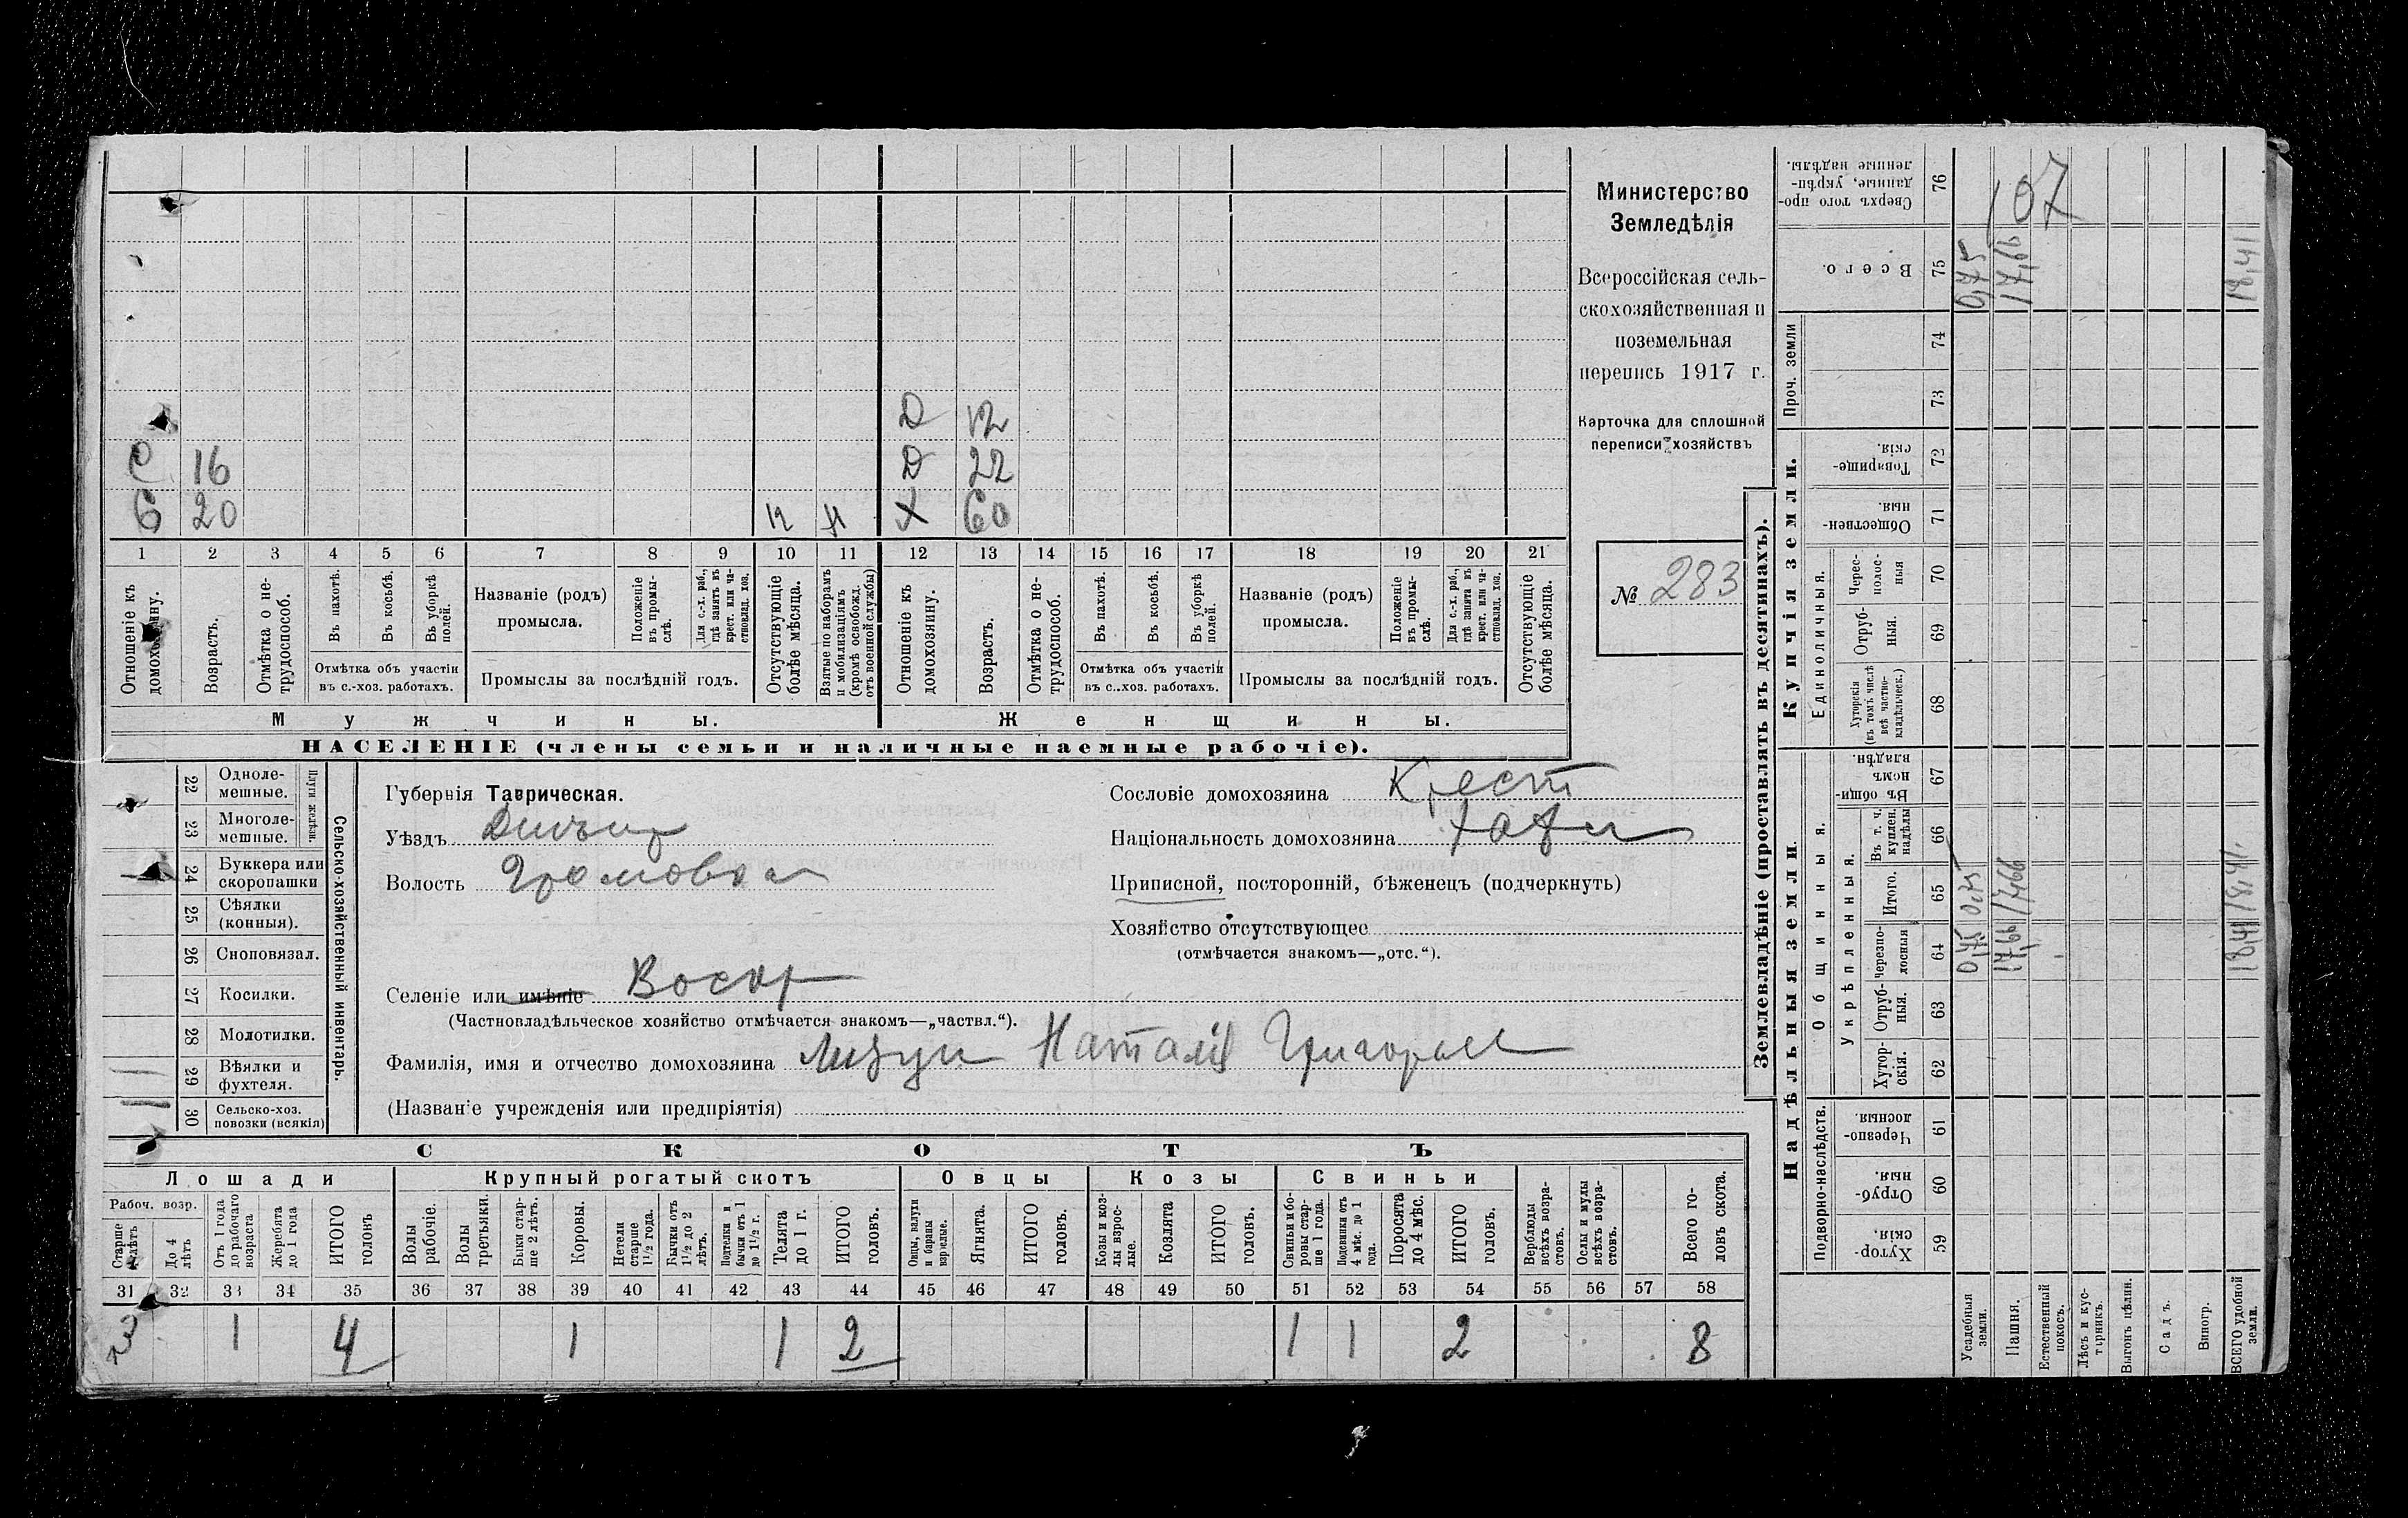 Министерство
Земледѣлія
Всероссійская сель-
скохозяйственная и
поземельная
перепись 1917 г.
Карточка для сплошной
переписи хозяйствъ
№ 283
107
Д 12
С 16 Д 22
С 20 Х 60
1 2 3 4 5 6 7 8 9 10 11 12 13 14 15 16 17 18 19 20 21
Отношеніе къ домохозяину.
Возрастъ.
Отмѣтка о не-трудоспособ.
Въ пахотѣ.
Въ косьбѣ.
Въ уборкѣ полей.
Отмѣтка объ участіи
въ с.-хоз. работахъ.
Названіе (родъ)
промысла.
Положеніе въ промы-слѣ.
Для с.-х. раб., гдѣ занятъ въ крест. или ча-стновлад. хоз.
Промыслы за послѣдній годъ.
Отсутствующіе болѣе мѣсяца.
Взятые по наборамъ и мобилизаціямъ (кромѣ освобожд. отъ военной службы)
Отношеніе къ домохозяину.
Возрастъ.
Отмѣтка о не-трудоспособ.
Въ пахотѣ.
Въ косьбѣ.
Въ уборкѣ полей.
Отмѣтка объ участіи
въ с..хоз. работахъ.
Названіе (родъ)
промысла.
Положеніе въ промы-слѣ.
Для с.-х. раб., гдѣ занята въ крест. или ча-стновлад. хоз.
Промыслы за послѣдній годъ.
Отсутствующіе болѣе мѣсяца.
Мужчины.
Женщины.
НАСЕЛЕНІЕ (члены семьи и наличные наемные рабочіе).
Сельско-хозяйственный инвентарь.
Плуги желѣзн.
22 Одноле-мешные.
23 Многоле-мешные.
24 Буккера или скоропашки
25 Сѣялки (конныя).
26 Сноповязал.
27 Косилки.
28 Молотилки.
29 Вѣялки и фухтеля.
30 Сельско-хоз. повозки (всякія)
Губернія Таврическая.
Уѣздъ
Волость Громовка
Селеніе или имѣніе
(Частновладѣльческое хозяйство отмѣчается знакомъ—„частвл.“).
Фамилія, имя и отчество домохозяина Наталія
(Названіе учрежденія или предпріятія)
Сословіе домохозяина Крест
Національность домохозяина
Приписной, посторонній, бѣженецъ (подчеркнуть)
Хозяйство отсутствующее
(отмѣчается знакомъ—„отс.“).
СКОТЪ
Лошади
Крупный рогатый скотъ
Овцы
Козы
Свиньи
Рабоч. возр.
Старше 4 лѣтъ
До 4 лѣтъ
Отъ 1 года до рабочаго возраста
Жеребята до 1 года
ИТОГО головъ
Волы рабочіе.
Волы третьяки.
Быки стар-ше 2 лѣтъ.
Коровы.
Нетели старше 1½ года.
Бычки отъ 1½ до 2 лѣтъ.
Подтелки и бычки отъ 1 до 1½ г.
Телята до 1 г.
ИТОГО головъ.
Овцы, валухи и бараны взрослые.
Ягнята.
ИТОГО головъ.
Козы и коз-лы взрос-лые.
Козлята
ИТОГО головъ.
Свиньи и бо-ровы стар-ше 1 года.
Подсвинки отъ 4 мѣс. до 1 года.
Поросята до 4 мѣс.
ИТОГО головъ.
Верблюды всѣхъ возра-стовъ.
Ослы и мулы всѣхъ возра-стовъ.
Всего го-ловъ скота.
31 32 33 34 35 36 37 38 39 40 41 42 43 44 45 46 47 48 49 50 51 52 53 54 55 56 57 58
3 1 4 1 1 2 1 1 2 8
Землевладѣніе (проставлять въ десятинахъ).
Надѣльныя земли.
Купчія земли.
Проч. земли
Подворно-наслѣдств.
Общинныя.
Укрѣпленныя.
Единоличныя.
Хутор-скія. 59
Отруб-ныя. 60
Черезпо-лосныя. 61
Хутор-скія. 62
Отруб-ныя. 63
Черезпо-лосныя 64
Итого. 65
Въ т. ч. куплен. надѣлы 66
Въ общи-номъ владѣн. 67
Хуторскія (въ томъ числѣ всѣ частно-владѣльческ.) 68
Отруб-ныя. 69
Черес-полос-ныя 70
Обществен-ныя. 71
Товарище-скія. 72
73
74
Всего. 75
Сверхъ того про-данные, укрѣп-ленные надѣлы. 76
Усадебныя земли. 0,75 0,75 0,75
Пашня. 17,66 17,66 17,66
Естественный покосъ.
Лѣсъ и кус-тарникъ.
Выгонъ цѣлин.
Садъ.
Виногр.
ВСЕГО удобной земли. 18,41 18,41 18,41